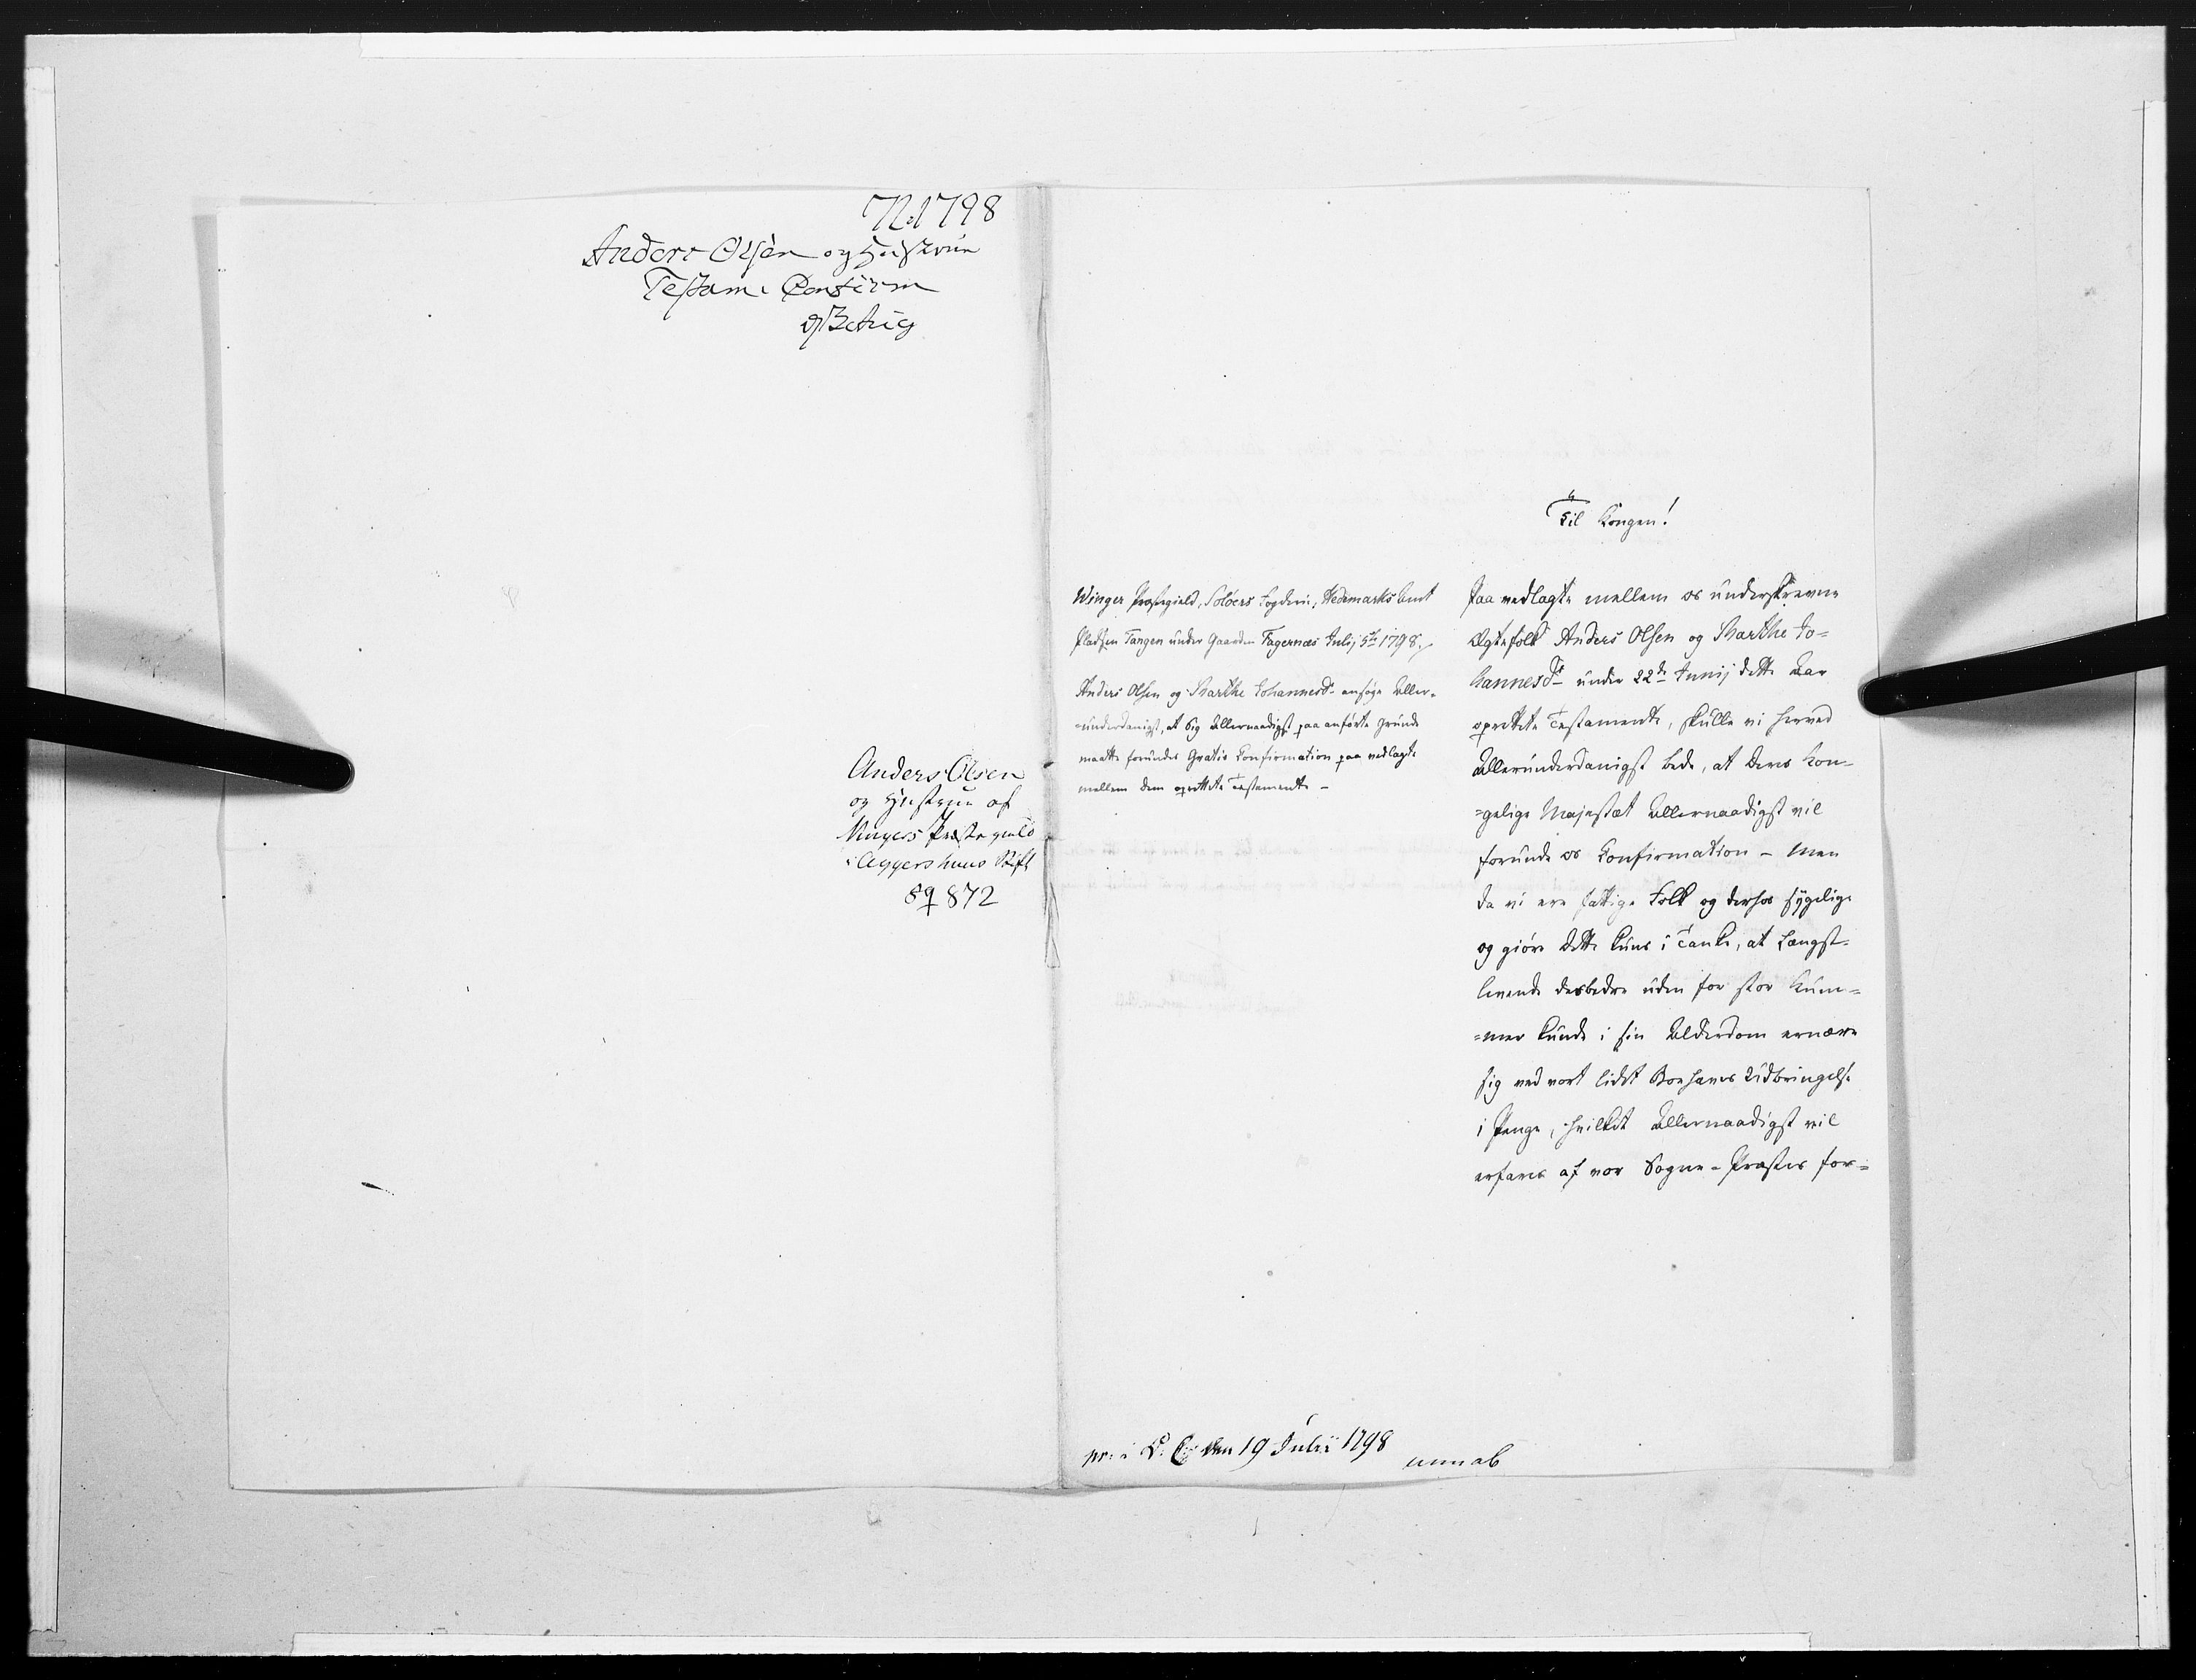 No 1798
Anders Olsen og Hustrue
Testam: Confirm
og Bethig
Anders Olsen
og Hustrue af
Vingers Præstegield
i Aggershuus Stift
872
Winger Præstegield, Soløers Fogderie, Hedemarks Amt
Pladsen Tangen under Gaarden Fagernæs Julij 5te 1798.
Anders Olsen og Marthe Johannesdr ansøge Aller-
underdanigst, at sig Allernaadigst paa anførte Grunde
maatte forundes Gratis Confirmation paa vedlagte
mellem dem oprettete Testamente -
Til Kongen!
Paa vedlagte mellem os underskrevne
Ægtefolk Anders Olsen og Marthe Jo=
hannesdr under 22de Junij dette Aar
oprettete Testamente, skulle vi herved
Allerunderdanigst bede, at Deres Kon-
=gelige Majestæt Allernaadigst vil
forunde os Confirmation - Men
da vi ere fattige Folk og derhos sygelige
og giøre dette kuns i Tanke, at Længst=
levende desbedre uden for stor Kum=
=mer kunde i sin Alderdom ernære
sig ved vort lidet Boehaves Udbringelse
i Penge, hvilket Allernaadigst vil
erfares af vor Sogne-Præstes for=
pr: i D: C: den 19 Julii 1798